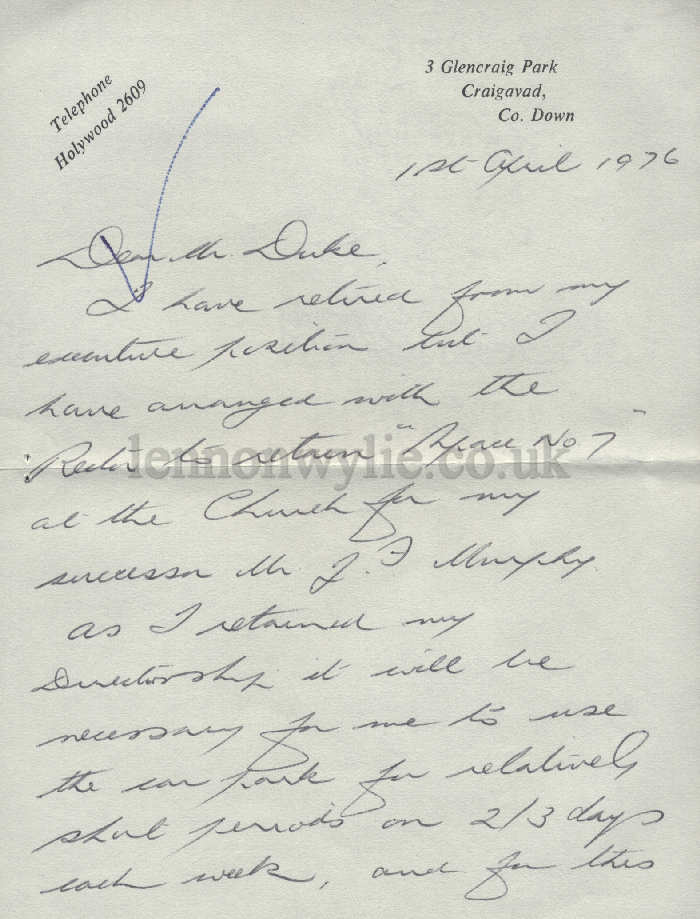 Telephone
Holywood 2609
3 Glencraig Park
Craigavad,
Co. Down
1st April 1976
Dear Mr. Duke,
I have retired from my
executive position but I
have arranged with the
Rector to retain "Space No 7"
lennonwylie.co.uk
at the Church for my
successor Mr J. F Murphy.
as I retained my
Directorship it will be
necessary for me to use
the car park for relatively
short periods on 2/3 days
each week, and for this